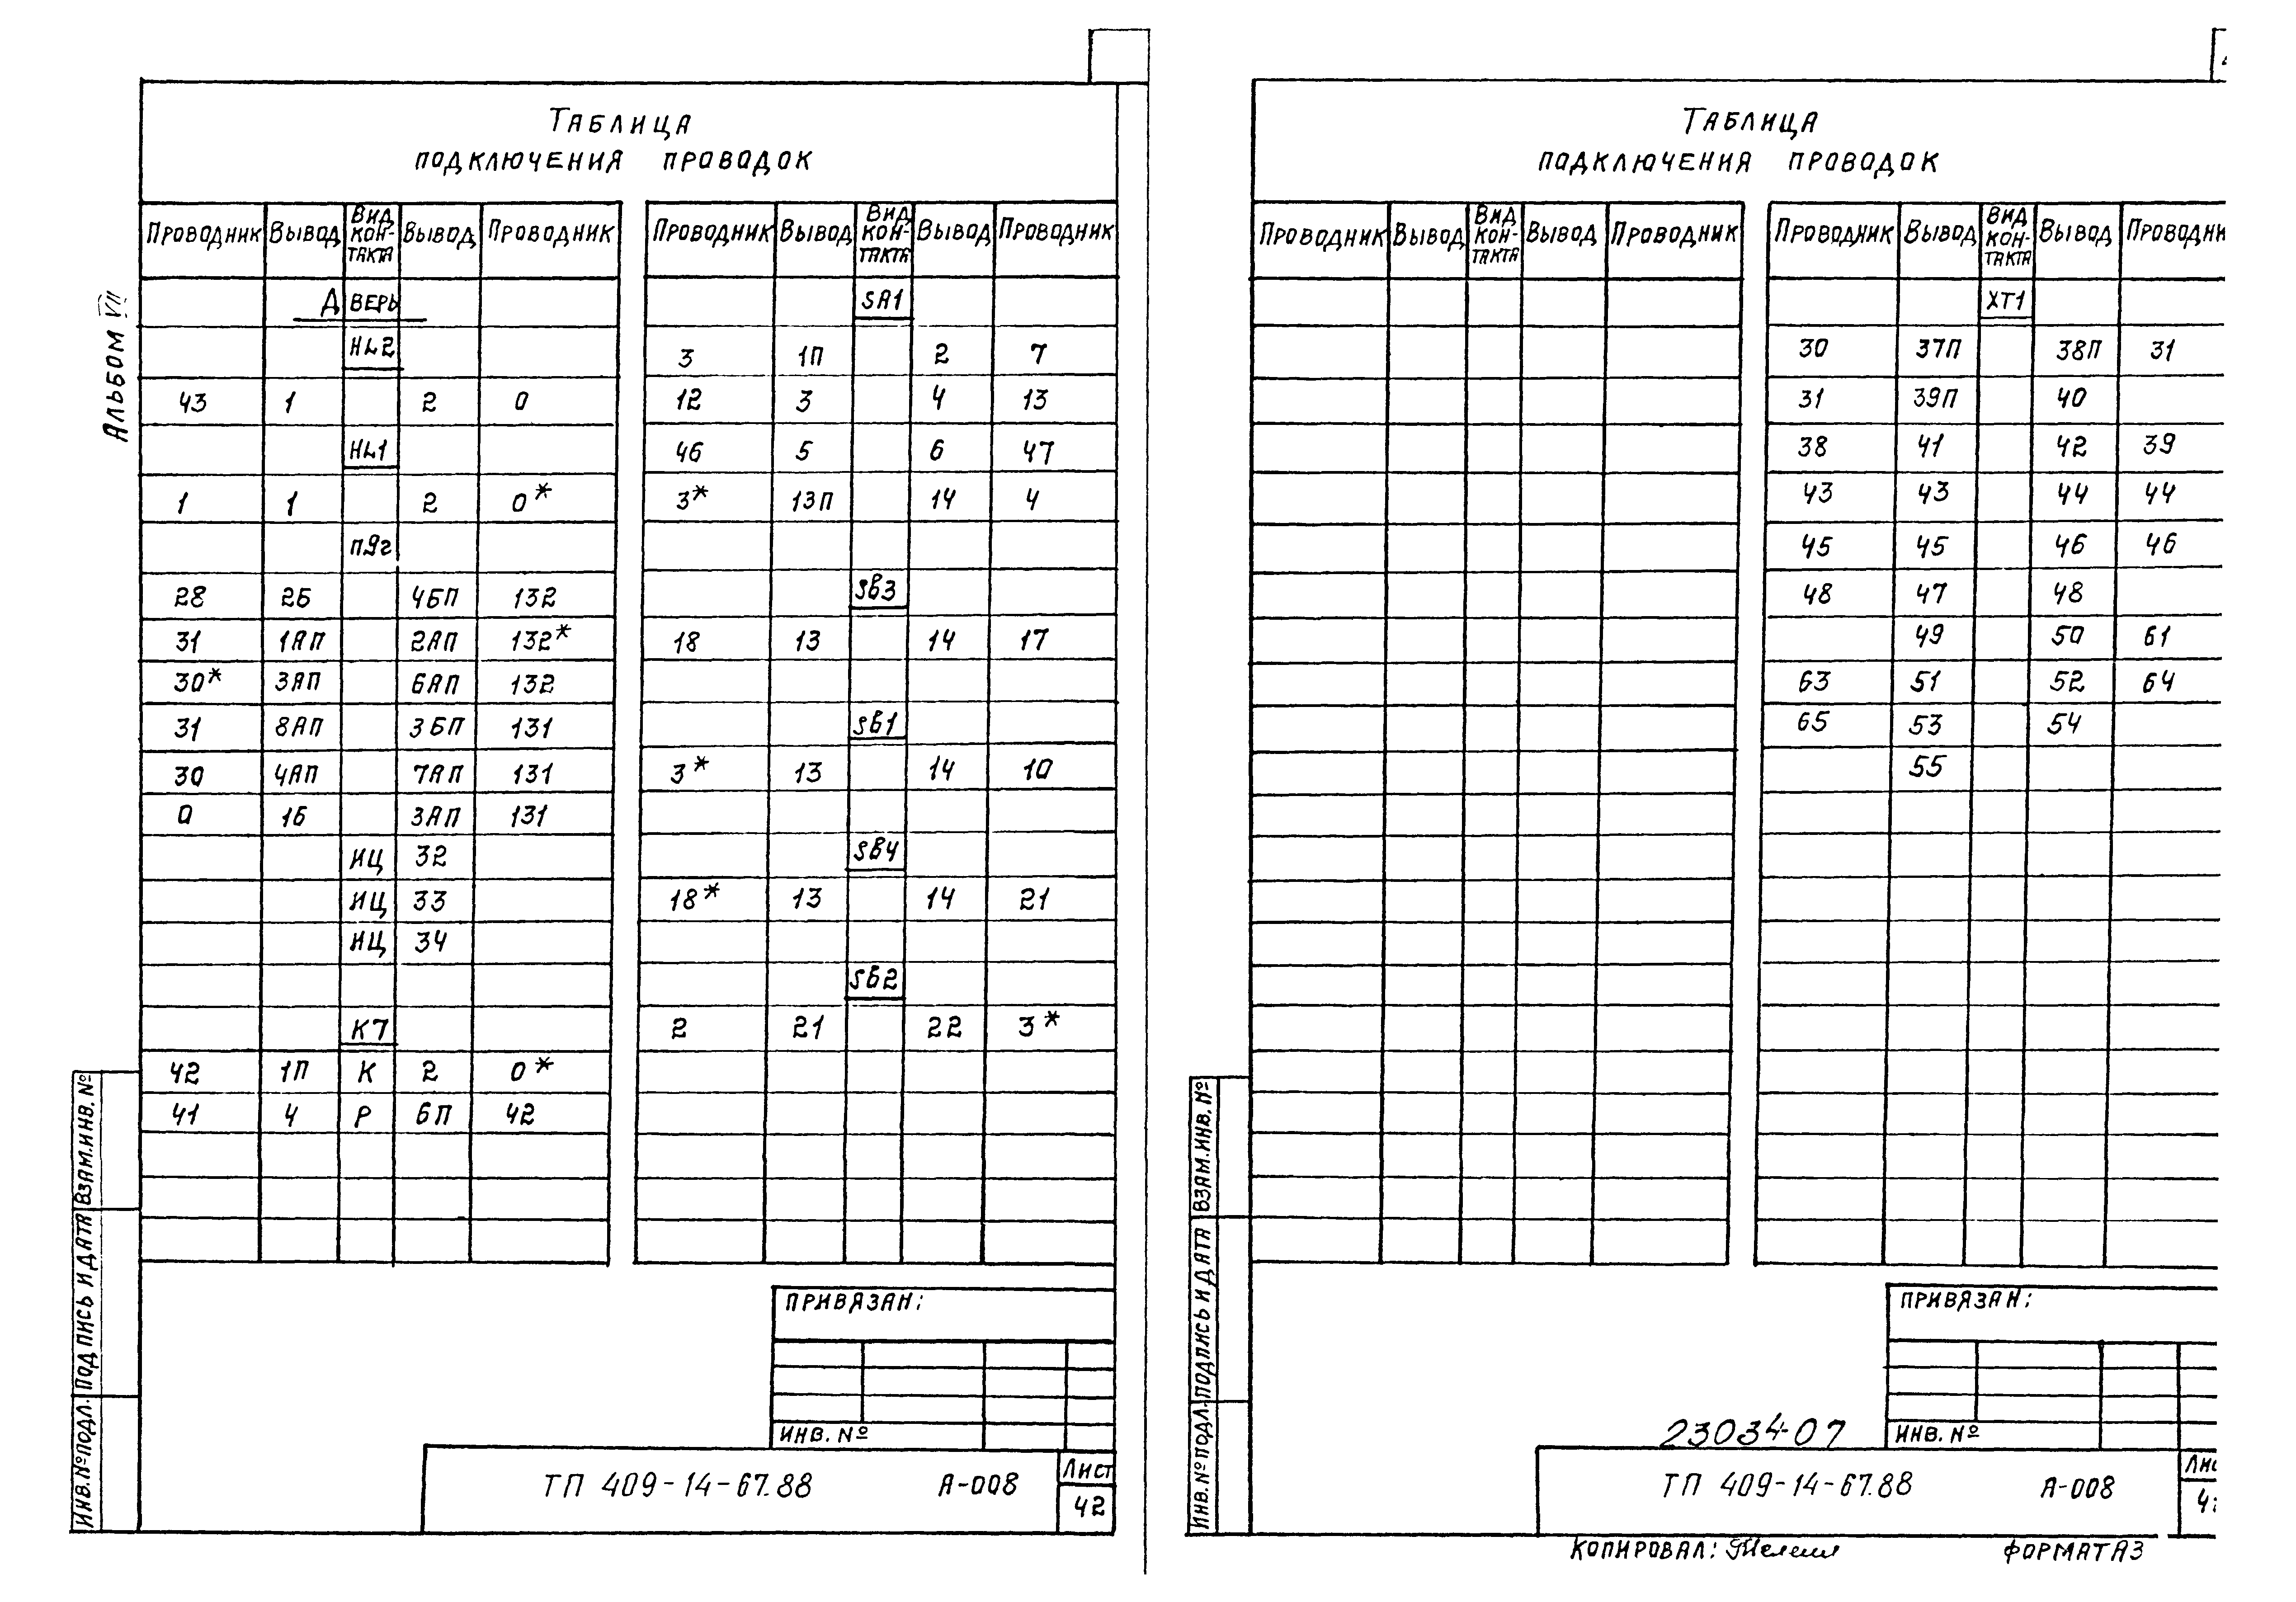 Альбом VII
Таблица
подключения проводок
Проводник Вывод Вид кон- такта Вывод Проводник
Дверь
HL2
43 1 2 0
HL1
1 1 2 0*
28 2Б 4БП 132
31 1АП 2АП 132*
30* 3АП 6АП 132
31 8АП 3БП 131
30 4АП 7АП 131
0 1Б 3АП 131
ИЦ 32
ИЦ 33
ИЦ 34
К7
42 1П К 2 0*
41 4 Р 6П 42
Проводник Вывод Вид кон- такта Вывод Проводник
SA1
3 1П 2 7
12 3 4 13
46 5 6 47
3* 13П 14 4
SB3
18 13 14 17
SB1
3* 13 14 10
SB4
18* 13 14 21
SB2
2 21 22 3*
Привязан:
Инв. №
ТП 409-14-67.88 А-008
Лист
42
Инв.№подл. Подпись и дата Взам.инв.№
Таблица
подключения проводок
Проводник Вывод Вид кон- такта Вывод Проводник
Проводник Вывод Вид кон- такта Вывод Проводни
XT1
30 37П 38П 31
31 39П 40
38 41 42 39
43 43 44 44
45 45 46 46
48 47 48
49 50 61
63 51 52 64
65 53 54
55
Привязан:
Инв. №
23034-07
ТП 409-14-67.88 А-008
Инв.№подл. Подпись и дата Взам.инв.№
Копировал:
Формат А3